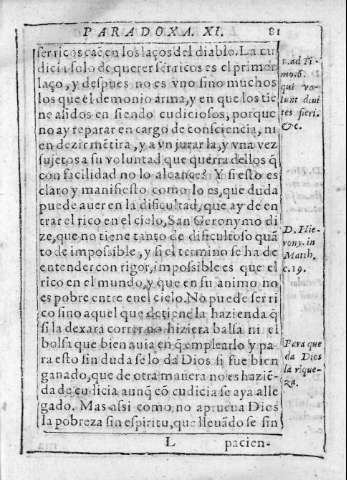 PARADOXA. XI. 81
ser ricos caẽ en los laços del diablo. La cu
dicia solo de querer ser ricos es el primer
laço, y despues no es vno sino muchos
los que el demonio arma, y en que los tie
ne asidos en siendo cudiciosos, porque
no ay reparar en cargo de consciencia, ni
en dezir mẽtira, y a vn jurarla, y vna vez
sujetos a su voluntad que querra dellos q̃
con facilidad no lo alcance? Y si esto es
claro y manifiesto como lo es, que duda
puede auer en la dificultad, que ay de en
trar el rico en el cielo, San Geronymo di
ze, que no tiene tanto de dificultoso quã
to de impossible, y si el termino se ha de
entender con rigor, impossible es que el
rico en el mundo, y que en su animo no
es pobre entre en el cielo. No puede ser ri
co sino aquel que detiene la hazienda q̃
si la dexara correr no hiziera balsa ni el
bolsa que bien auia en q̃ emplearlo y pa
ra esto sin duda se lo da Dios si fue bien
ganado, que de otra manera no es haziẽ
da de cudicia aunq̃ cõ cudicia se aya alle
gado. Mas assi como no aprueua Dios
la pobreza sin espiritu, que lleuãdo se sin
L pacien-
1. ad Ti
mo. 6.
qui vo
lunt diui
tes fieri.
&c.
D. Hie
rony. in
Matth.
c. 19.
Para que
da Dios
la rique-
za.